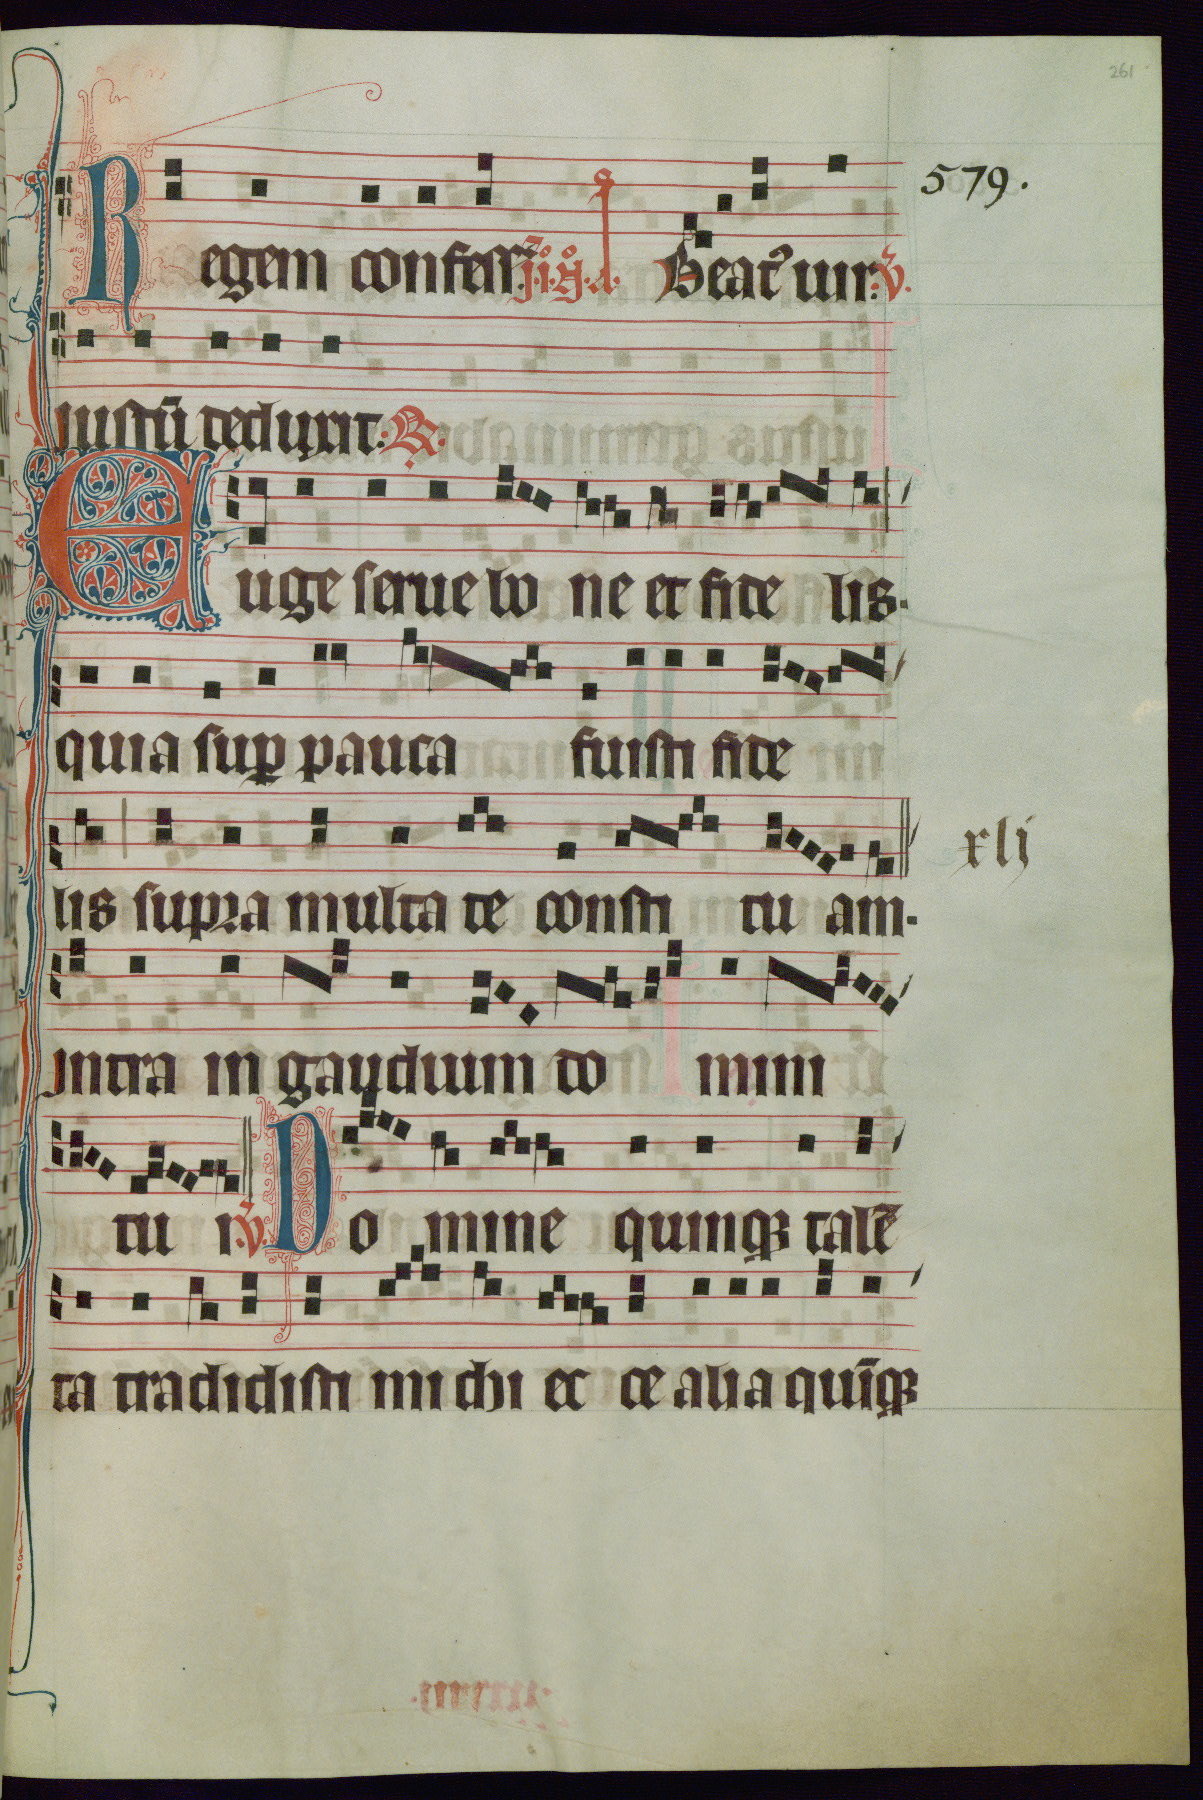 261
579.
Regem confess. Beat⁹ uir. V̄.
iustū deduxit. R.
Euge serue bo ne et fide lis.
quia sup pauca fuisti fide
xlj
lis supra multa te consti tu am.
intra in gaudium do mini
tu i. V̄. Do mine quinqꝫ talē
ta tradidisti michi ec ce alia quīqꝫ